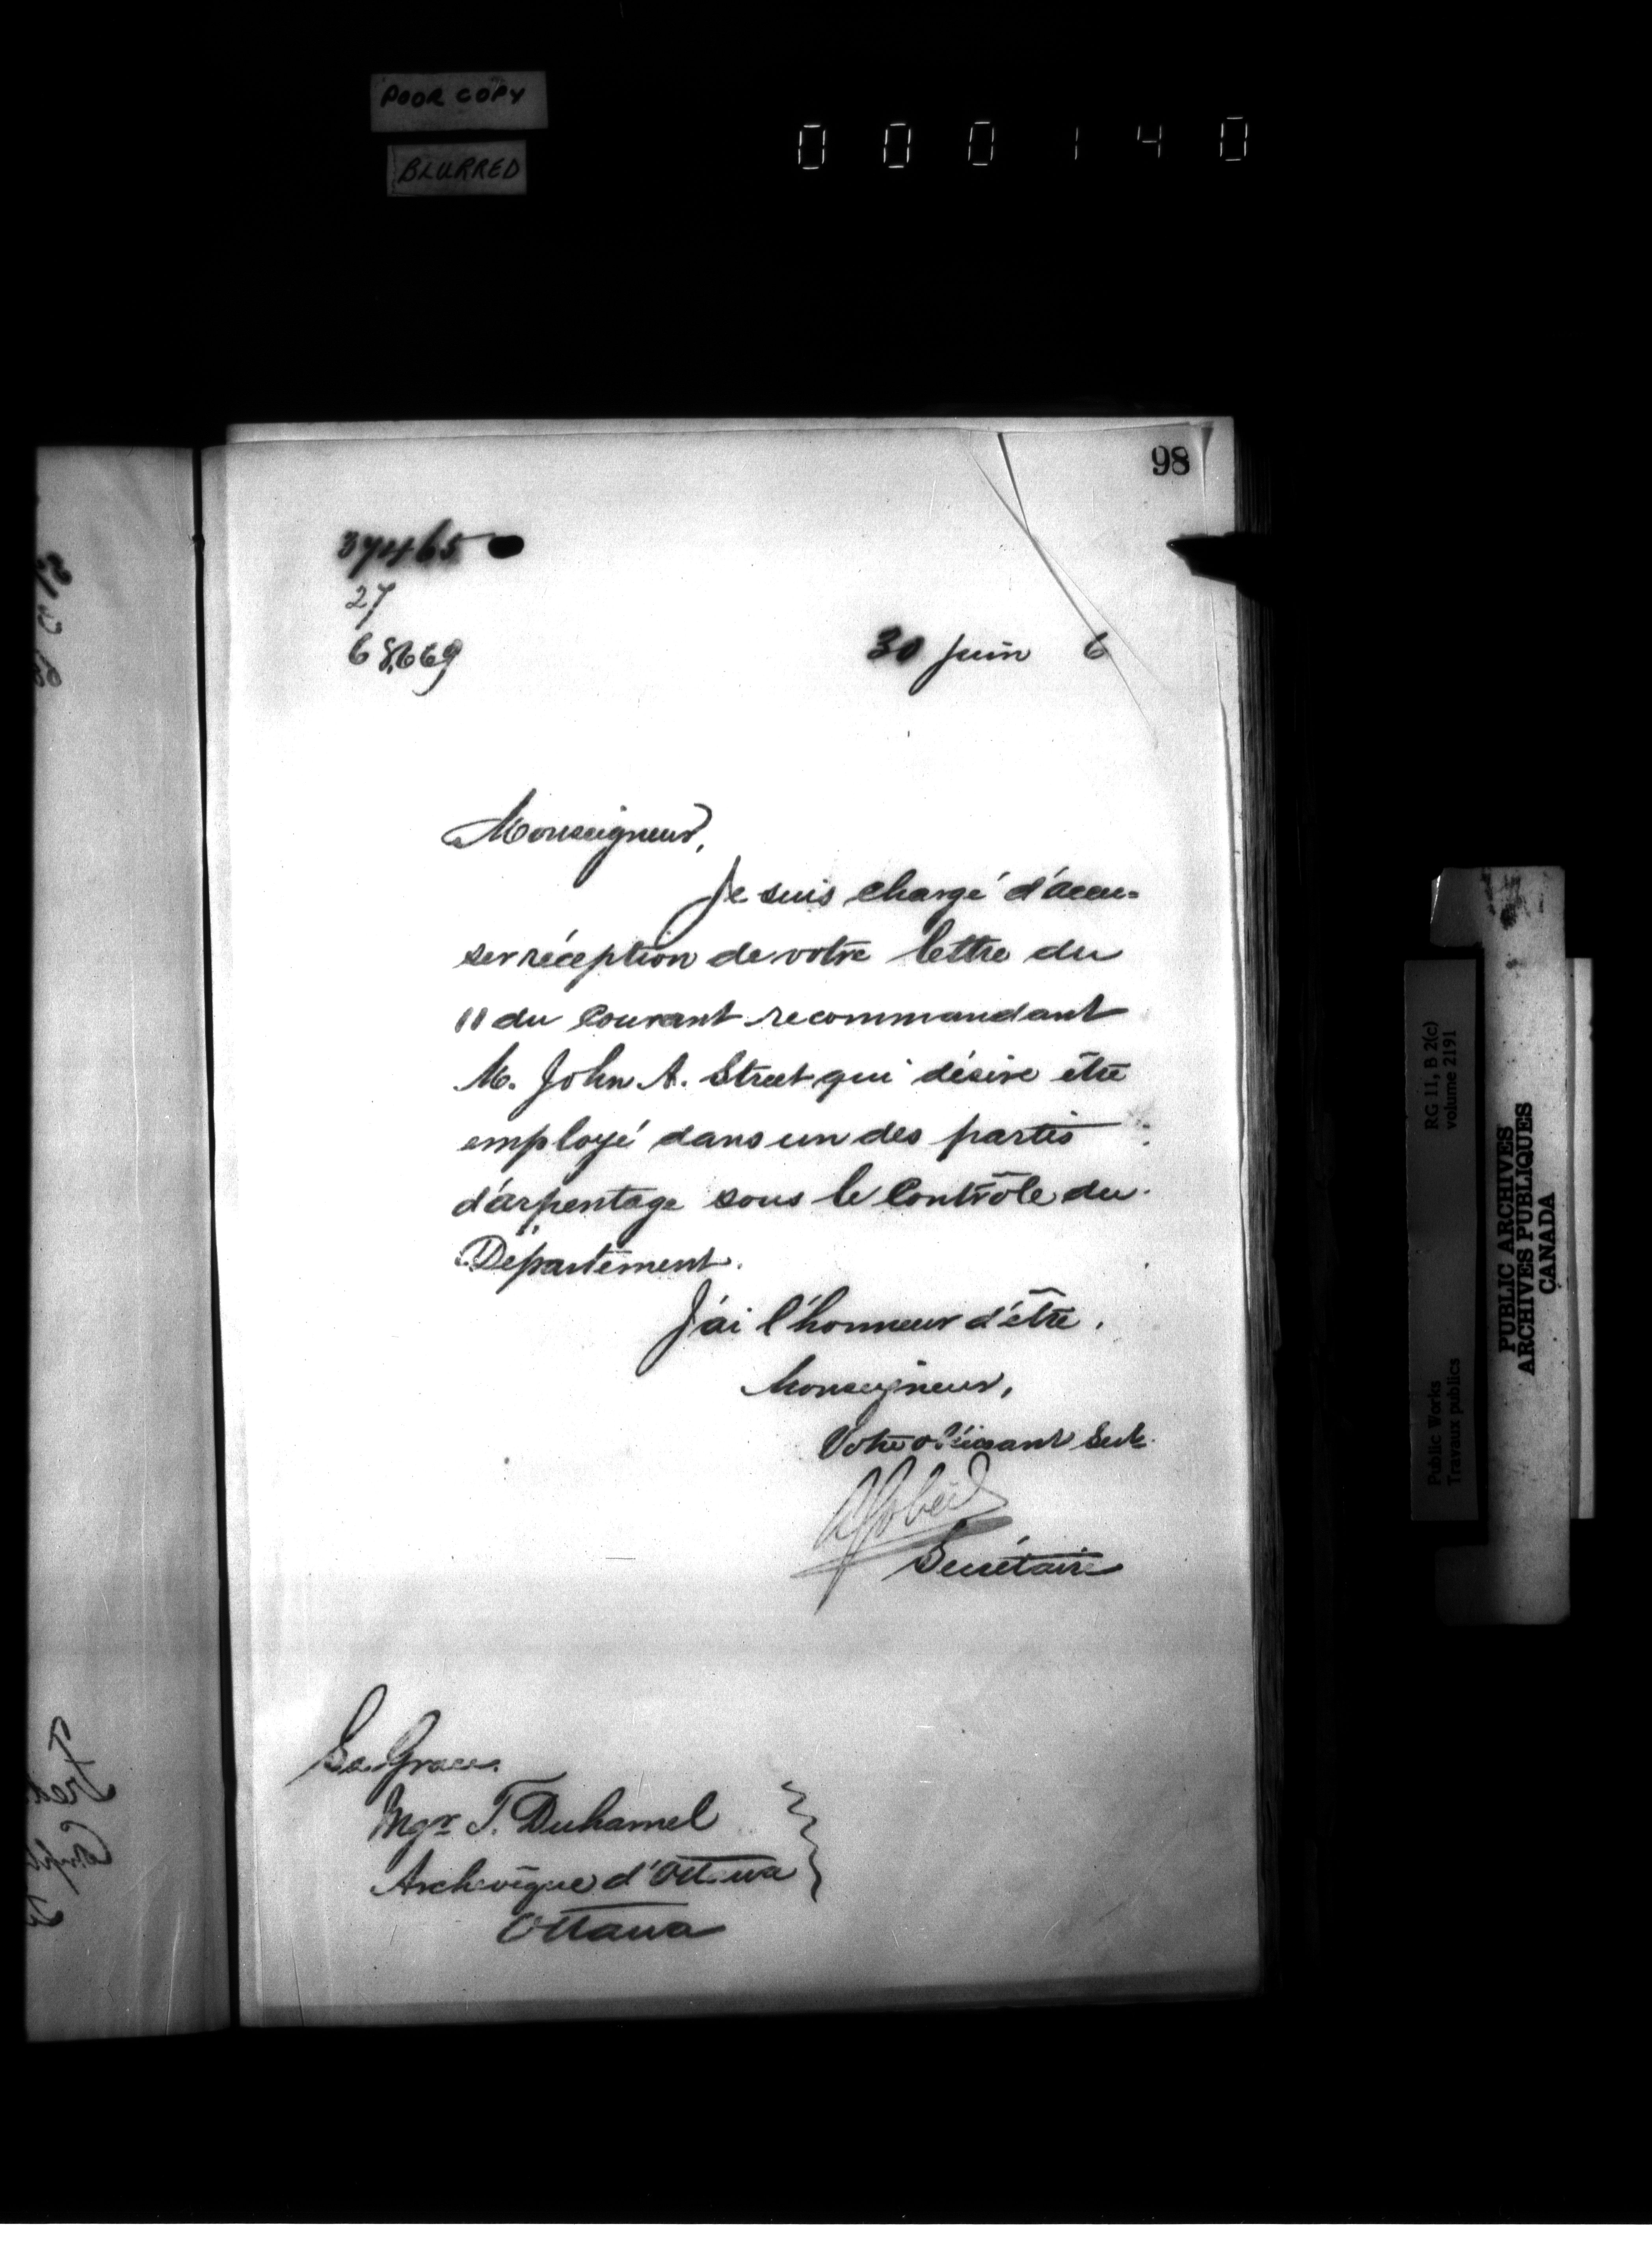 POOR COPY
BLURRED
000140
98
37465
27
68,669
30 Juin 6
Monseigneur,
Je suis chargé d'accu-
ser réception de votre lettre du
11 du Courant recommandant
M. John A. Street qui désire être
employé dans un des partis
d'arpentage sous le Contrôle du
Département.
J'ai l'honneur d'être,
Monseigneur,
Votre obéissant
Secrétaire
Sa Grace
Mgr T. Duhamel
Archevêque d'Ottawa
Ottawa
RG 11, B 2(c)
volume 2191
Public Works
Travaux publics
PUBLIC ARCHIVES
ARCHIVES PUBLIQUES
CANADA